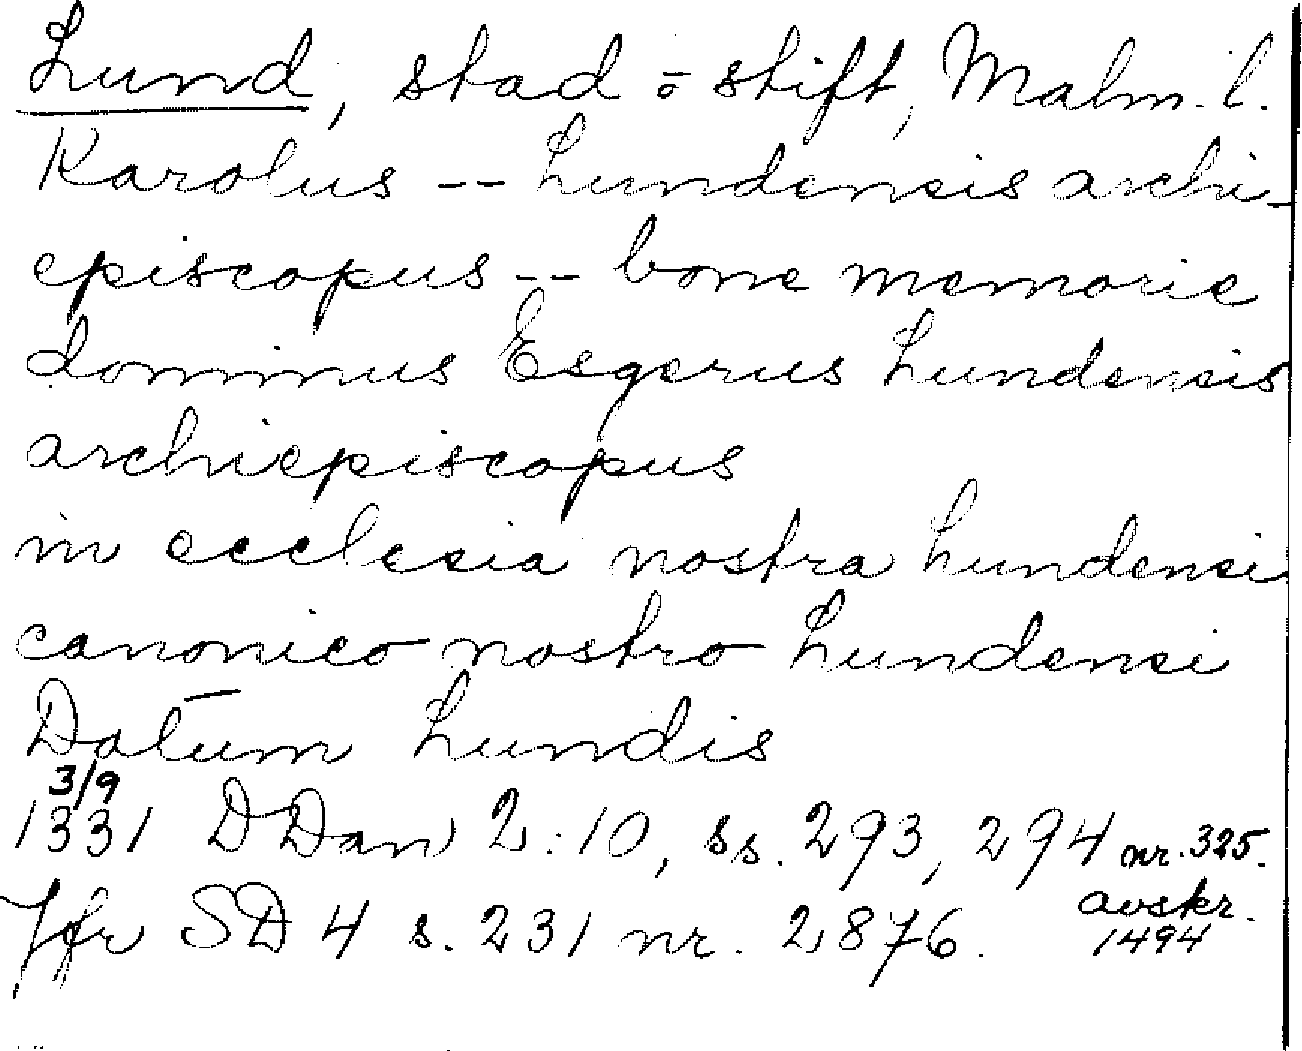 Lund, stad o stift, Malm. l.
Karolus -- Lundensis archi-
episcopus -- bone memorie
dominus Esgerus Lundensis
archiepiscopus
in ecclesia nostra Lundensi
canonico nostro Lundensi
Datum Lundis
3/9
1331 DDan 2:10, ss. 293, 294 nr. 325.
Jfr SD 4 s. 231 nr. 2876. avskr.
1494